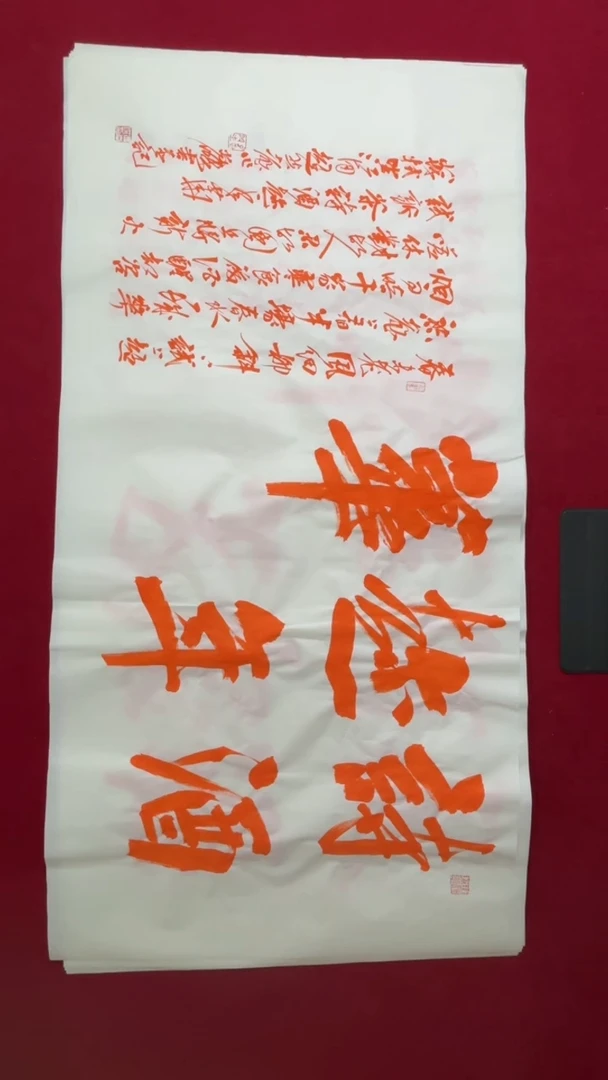 詩酒
趁年
華
春未老風細柳斜斜試上超
然臺上看半壕春水一城華
烟雨暗千家寒食後酒醒却咨
嗟休對故人思故國且將新火
試新茶詩酒趁年華
蘇軾望江南超然